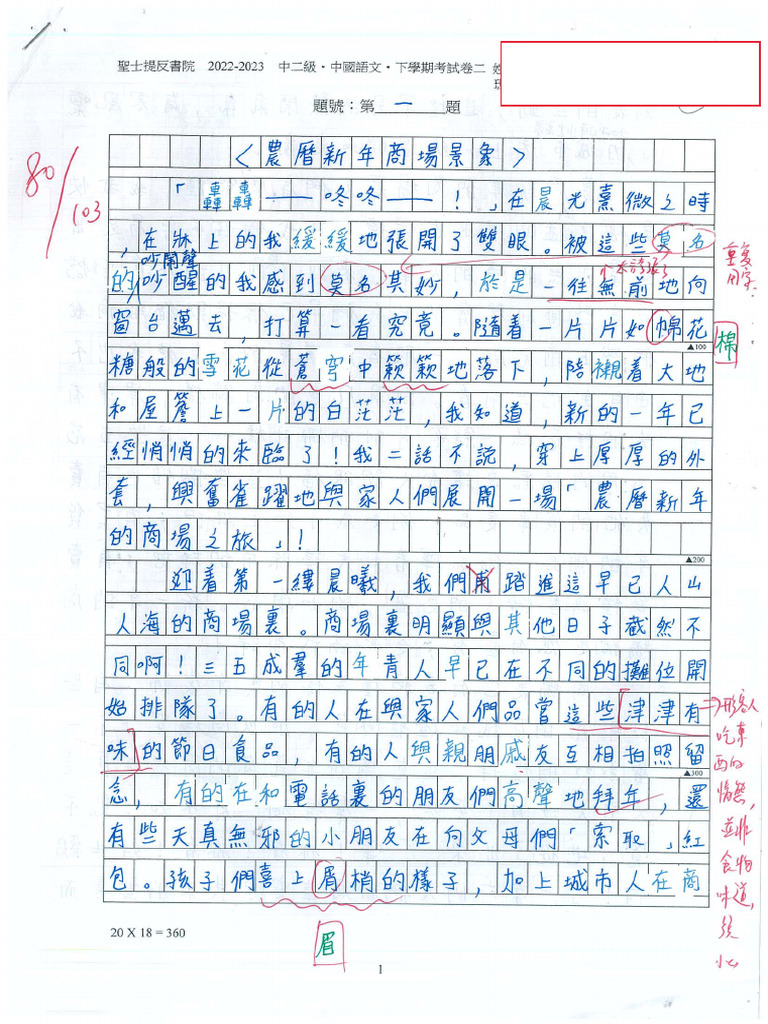 聖士提反書院 2022-2023 中二級・中國語文・下學期考試卷二 姓
班
題號：第 一 題
80/103
〈農曆新年商場景象〉
「轟轟——咚咚——！」在晨光熹微之時
，在牀上的我緩緩地張開了雙眼。被這些莫名
重複用字
太誇張了
吵鬧聲
的吵醒的我感到莫名其妙，於是一往無前地向
窗台邁去，打算一看究竟。隨着一片片如棉花
棉
▲100
糖般的雪花從蒼穹中簌簌地落下，陪襯着大地
和屋簷上一片的白茫茫，我知道，新的一年已
經悄悄的來臨了！我二話不說，穿上厚厚的外
套，興奮雀躍地與家人們展開一場「農曆新年
的商場之旅」！
▲200
迎着第一縷晨曦，我們踏進這早已人山
人海的商場裏。商場裏明顯與其他日子截然不
同啊！三五成羣的年青人早已在不同的攤位開
始排隊了。有的人在與家人們品嘗這些津津有
味的節日食品，有的人與親朋戚友互相拍照留
→形容人吃東西的情態，並非食物味道，須小心
▲300
念，有的在和電話裏的朋友們高聲地拜年，還
有些天真無邪的小朋友在向父母們「索取」紅
包。孩子們喜上眉梢的樣子，加上城市人在商
眉
20 X 18 = 360
1